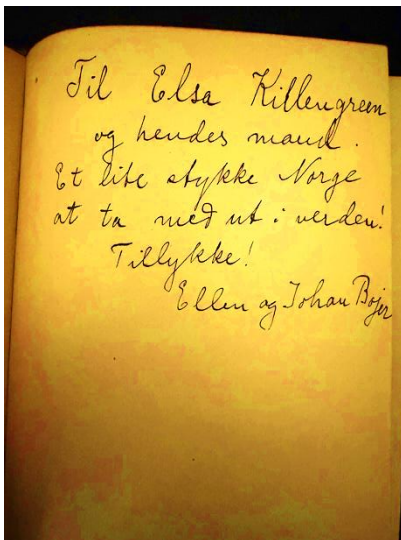 Til Elsa Killengreen
og hendes mand.
Et lite stykke Norge
at ta med ut i verden!
Tillykke!
Ellen og Johan Bojer